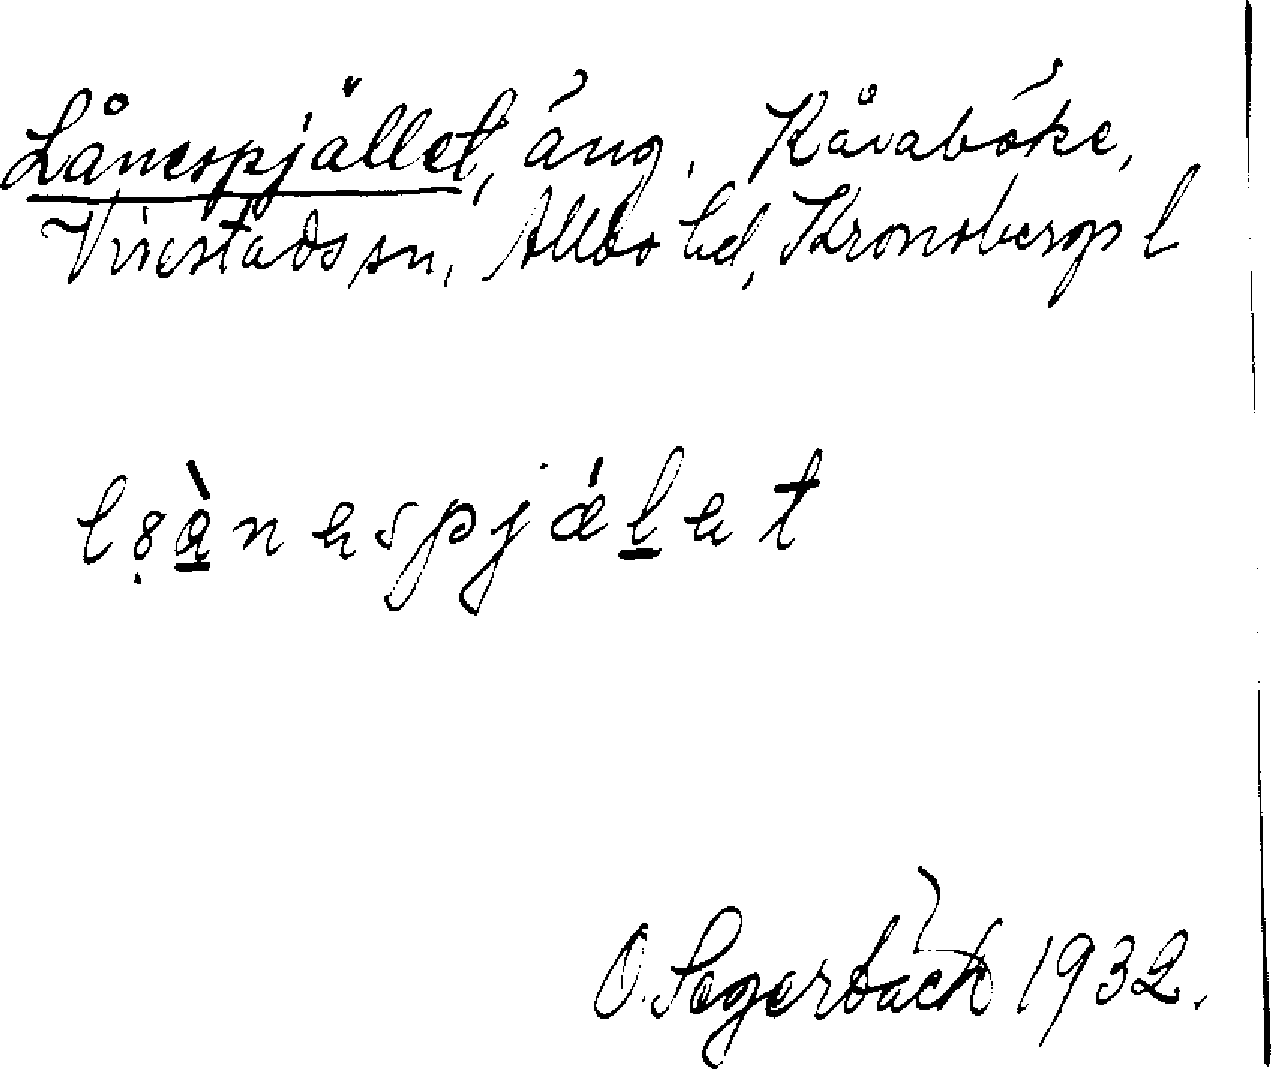 Lånespjället, äng. Kåraböke,
Virestads sn, Allbo hd, Kronobergs l
lṣànespjǽlet
O. Segerbäck 1932.